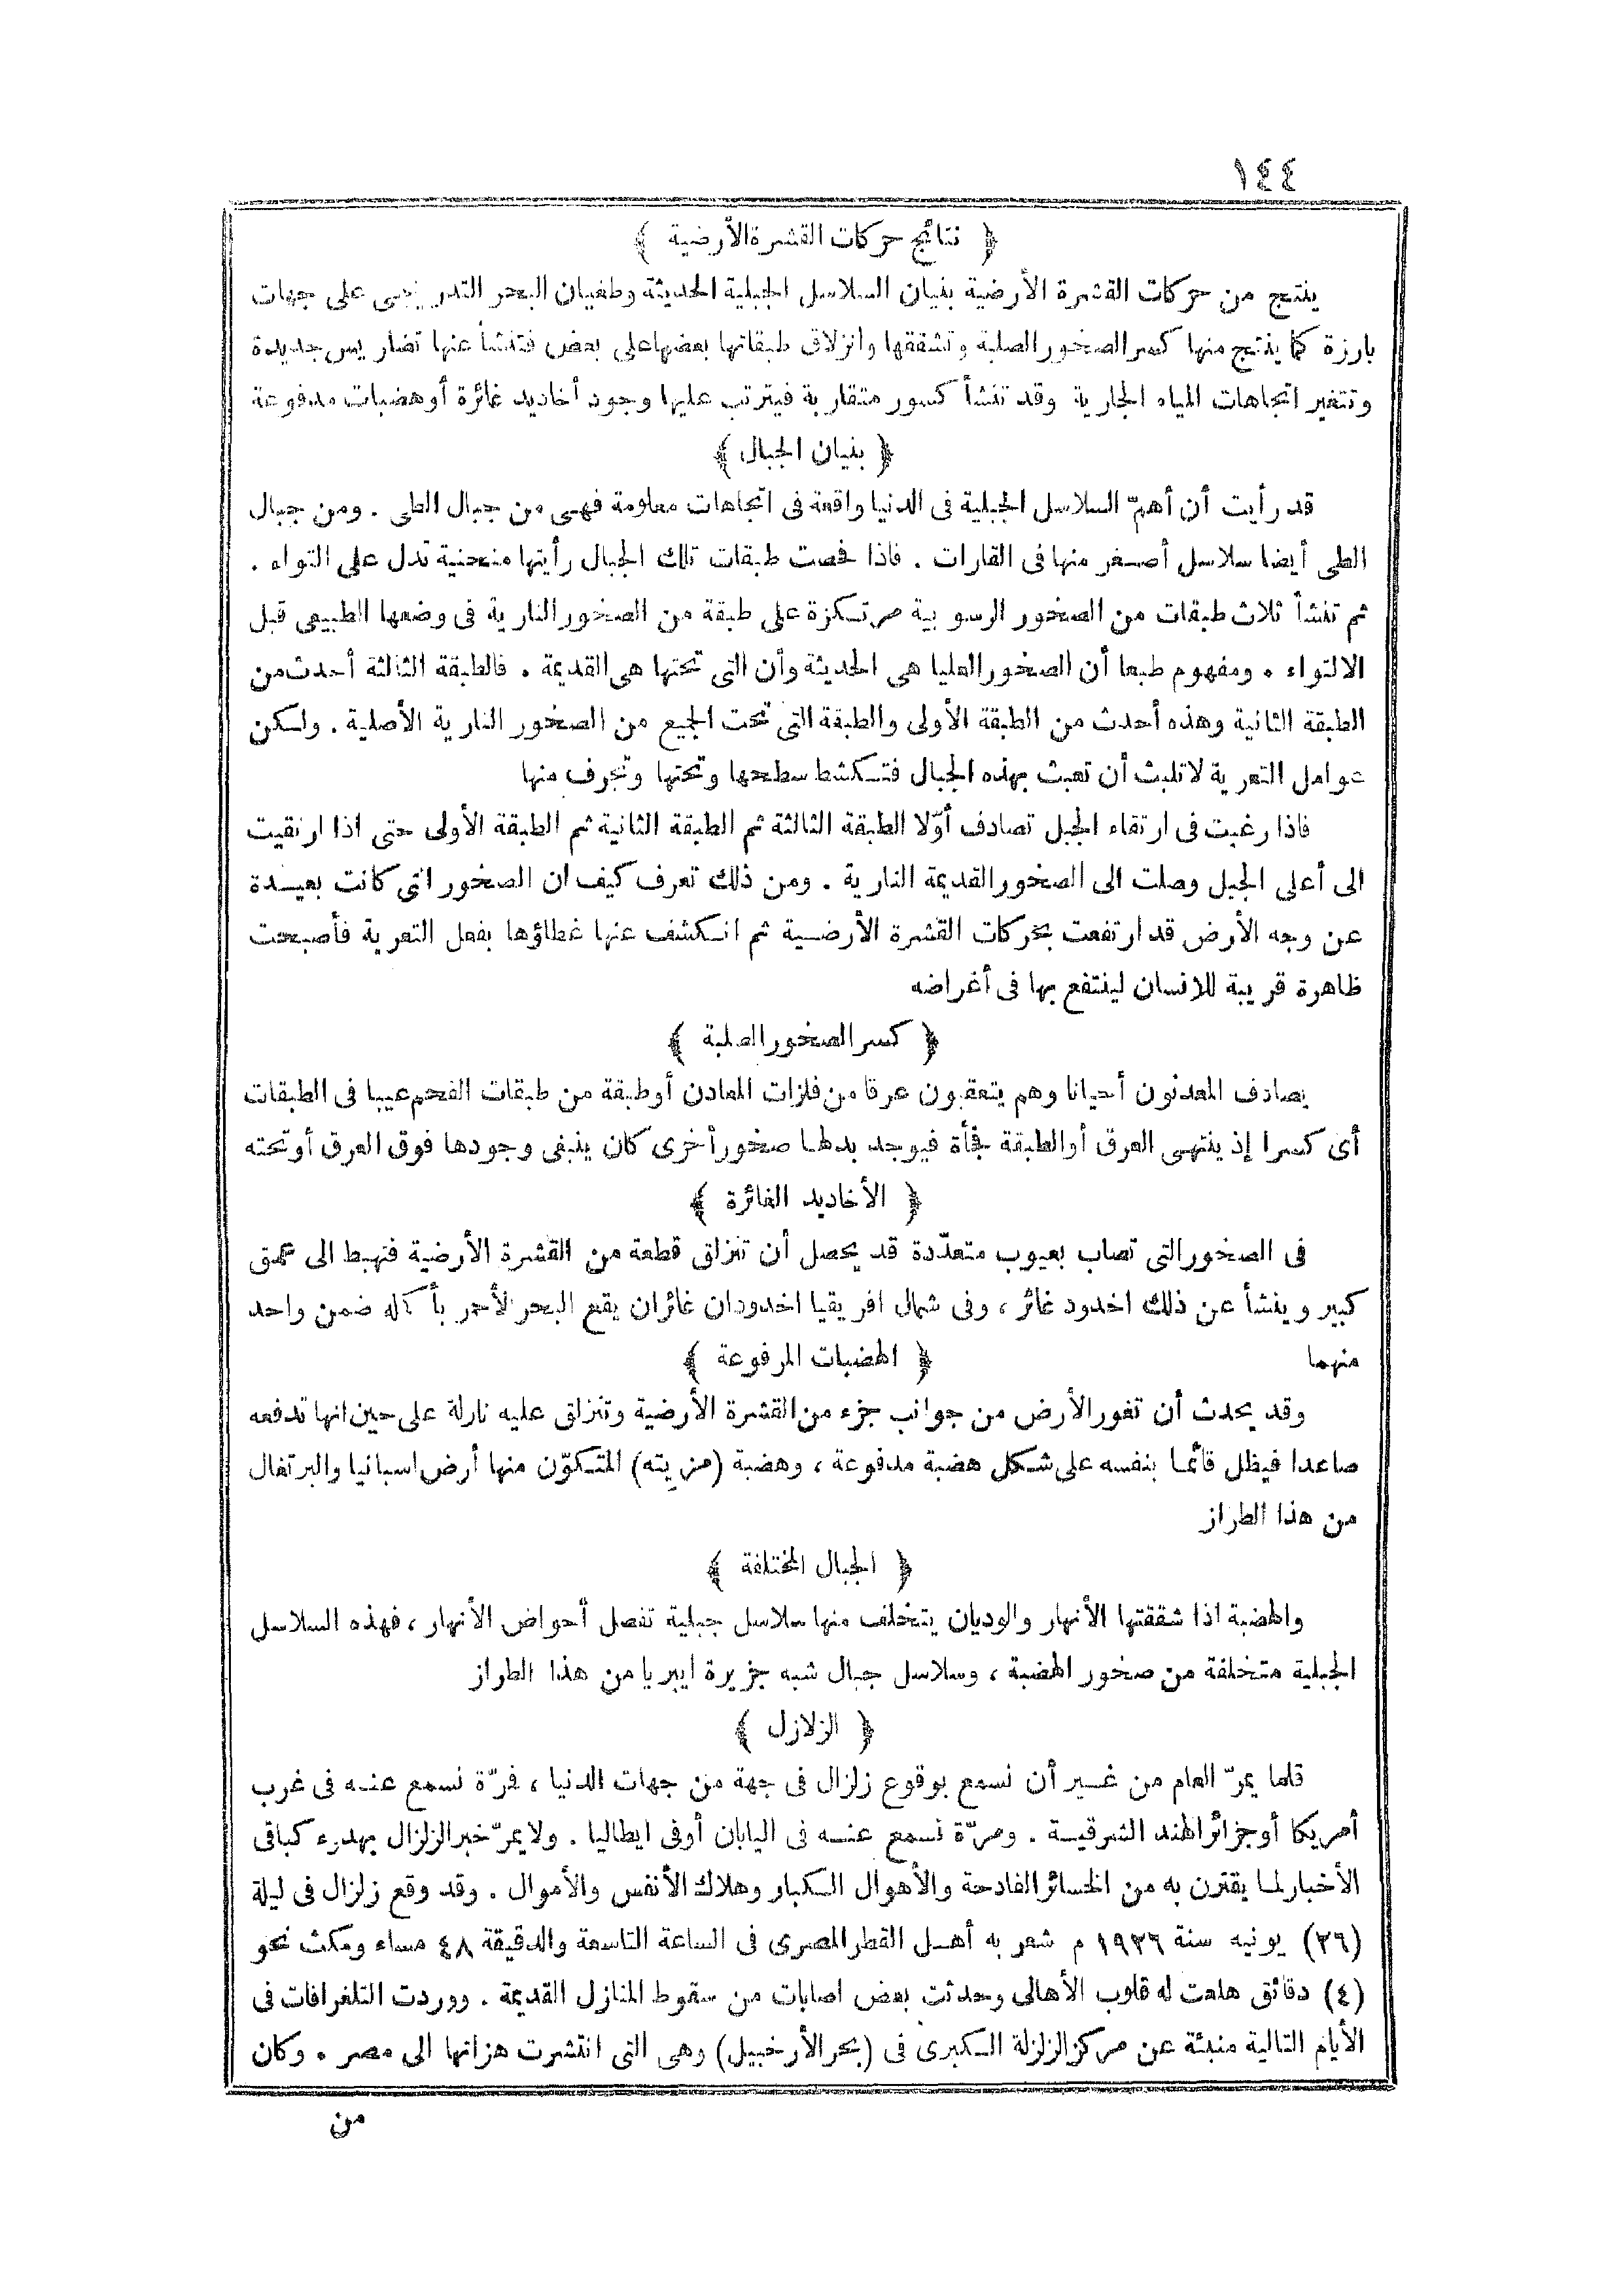 ١٤٤
﴿ نتائج حركات القشرة الأرضية ﴾
ينتج من حركات القشرة الأرضية بنيان السلاسل الجبلية الحديثة وطغيان البحر التدريجى على جهات
بارزة كما ينتج منها كسر الصخور الصلبة وتشققها وانزلاق طبقاتها بعضها على بعض فتنشأ عنها تضاريس جديدة
وتتغير اتجاهات المياه الجارية وقد تنشأ كسور متقاربة فيترتب عليها وجود أخاديد غائرة أو هضبات مدفوعة
﴿ بنيان الجبال ﴾
قد رأيت أن أهمّ السلاسل الجبلية فى الدنيا واقعة فى اتجاهات معلومة فهى من جبال الطى . ومن جبال
الطى أيضا سلاسل أصغر منها فى القارات . فاذا فحصت طبقات تلك الجبال رأيتها منحنية تدل على التواء .
ثم تنشأ ثلاث طبقات من الصخور الرسوبية مرتكزة على طبقة من الصخور النارية فى وضعها الطبيعى قبل
الالتواء . ومفهوم طبعا أن الصخور العليا هى الحديثة وأن التى تحتها هى القديمة . فالطبقة الثالثة أحدث من
الطبقة الثانية وهذه أحدث من الطبقة الأولى والطبقة التى تحت الجميع من الصخور النارية الأصلية . ولكن
عوامل التعرية لا تلبث أن تعبث بهذه الجبال فتكشط سطحها وتحتها وتجرف منها
فاذا رغبت فى ارتقاء الجبل تصادف أوّلا الطبقة الثالثة ثم الطبقة الثانية ثم الطبقة الأولى حتى اذا ارتقيت
الى أعلى الجبل وصلت الى الصخور القديمة النارية . ومن ذلك تعرف كيف ان الصخور التى كانت بعيدة
عن وجه الأرض قد ارتفعت بحركات القشرة الأرضية ثم انكشف عنها غطاؤها بفعل التعرية فأصبحت
ظاهرة قريبة للانسان لينتفع بها فى أغراضه
﴿ كسر الصخور الصلبة ﴾
يصادف المعدنون أحيانا وهم يتعقبون عرقا من فلزات المعادن أو طبقة من طبقات الفحم عيبا فى الطبقات
أى كسرا إذ ينتهى العرق أو الطبقة فجأة فيوجد بدلها صخور أخرى كان ينبغى وجودها فوق العرق أو تحته
﴿ الأخاديد الغائرة ﴾
فى الصخور التى تصاب بعيوب متعدّدة قد يحصل أن تنزلق قطعة من القشرة الأرضية فتهبط الى عمق
كبير وينشأ عن ذلك اخدود غائر ، وفى شمال افريقيا اخدودان غائران يقع البحر الأحمر بأكمله ضمن واحد
منهما
﴿ الهضبات المرفوعة ﴾
وقد يحدث أن تغور الأرض من جوانب جزء من القشرة الأرضية وتنزلق عليه نازلة على حين انها تدفعه
صاعدا فيظل قائما بنفسه على شكل هضبة مدفوعة ، وهضبة (مزيته) المتكوّن منها أرض اسبانيا والبرتغال
من هذا الطراز
﴿ الجبال المختلفة ﴾
والهضبة اذا شققتها الأنهار والوديان يتخلف منها سلاسل جبلية تفصل أحواض الأنهار ، فهذه السلاسل
الجبلية متخلفة من صخور الهضبة ، وسلاسل جبال شبه جزيرة ايبريا من هذا الطراز
﴿ الزلازل ﴾
قلما يمرّ العام من غير أن نسمع بوقوع زلزال فى جهة من جهات الدنيا ، فمرّة نسمع عنه فى غرب
أمريكا أو جزائر الهند الشرقية . ومرّة نسمع عنه فى اليابان أو فى ايطاليا . ولا يمرّ خبر الزلزال بهدوء كباقى
الأخبار لما يقترن به من الخسائر الفادحة والأهوال الكبار وهلاك الأنفس والأموال . وقد وقع زلزال فى ليلة
(٢٦) يونيه سنة ١٩٢٦ م شعر به أهل القطر المصرى فى الساعة التاسعة والدقيقة ٤٨ مساء ومكث نحو
(٤) دقائق هلعت له قلوب الأهالى وحدثت بعض اصابات من سقوط المنازل القديمة . ووردت التلغرافات فى
الأيام التالية منبئة عن مركز الزلزلة الكبرى فى (بحر الأرخبيل) وهى التى انتشرت هزاتها الى مصر . وكان
من